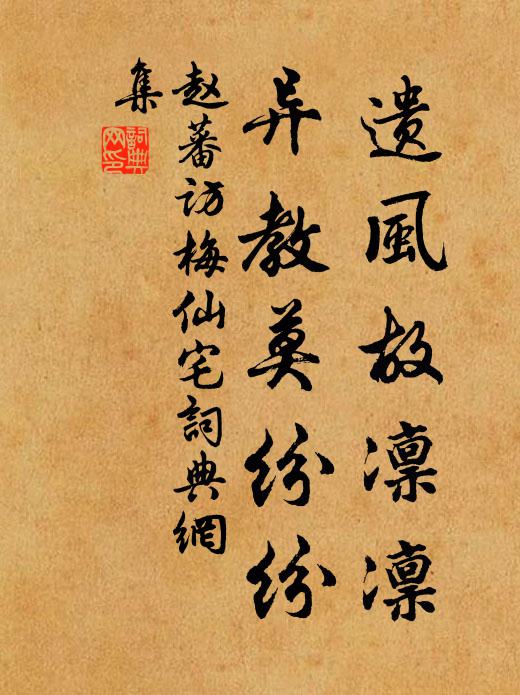 遗風故凛凛
异教莫纷纷
赵蕃访梅仙宅詞典網
集
詞典網印